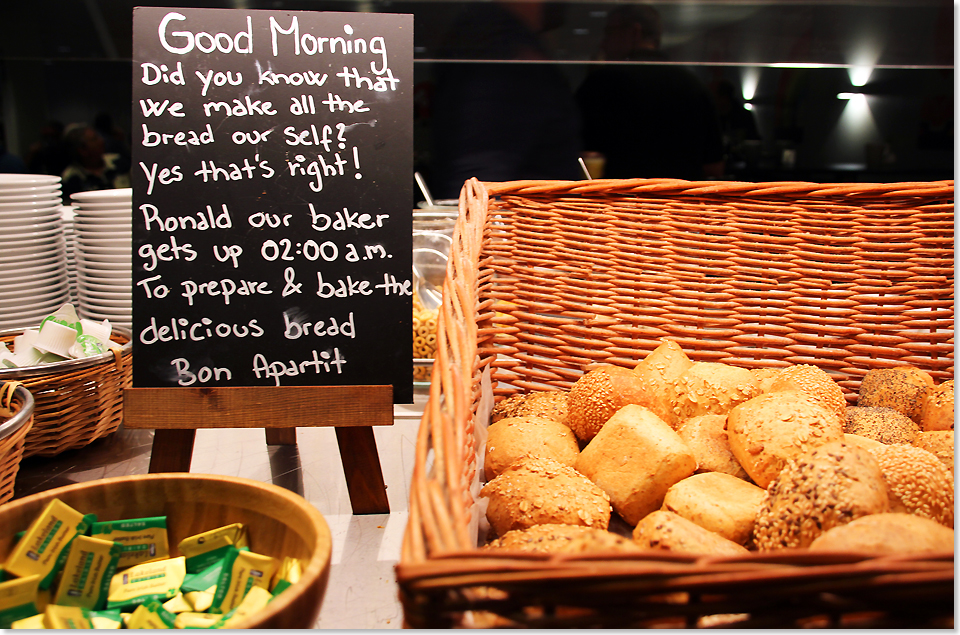 Good Morning
Did you know that
we make all the
bread our self?
Yes that's right!
Ronald our baker
gets up 02:00 a.m.
To prepare & bake the
delicious bread
Bon Apartit